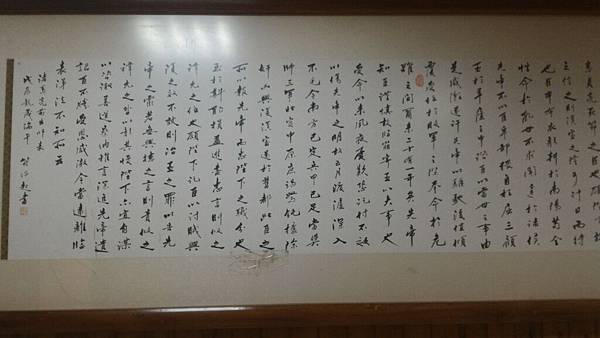 悉貞亮死節之臣也願陛下親
之信之則漢室之隆可計日而待
也臣本布衣躬耕於南陽苟全
性命於亂世不求聞達於諸侯
先帝不以臣卑鄙猥自枉屈三顧
臣於草廬之中諮臣以當世之事由
是感激遂許先帝以驅馳後值傾
覆受任於敗軍之際奉命於危
難之間爾來二十有一年矣先帝
知臣謹慎故臨崩寄臣以大事也
受命以來夙夜憂歎恐託付不效
以傷先帝之明故五月渡瀘深入
不毛今南方已定兵甲已足當獎
帥三軍北定中原庶竭駑鈍攘除
奸凶興復漢室還於舊都此臣之
所以報先帝而忠陛下之職分也
至於斟酌損益進盡忠言則攸之
禕允之任也願陛下託臣以討賊興
復之效不效則治臣之罪以告先
帝之靈若無興德之言則責攸之
禕允之咎以彰其慢陛下亦宜自謀
以諮諏善道察納雅言深追先帝遺
詔臣不勝受恩感激今當遠離臨
表涕泣不知所云
諸葛亮前出師表
戊辰龍歲端午 書